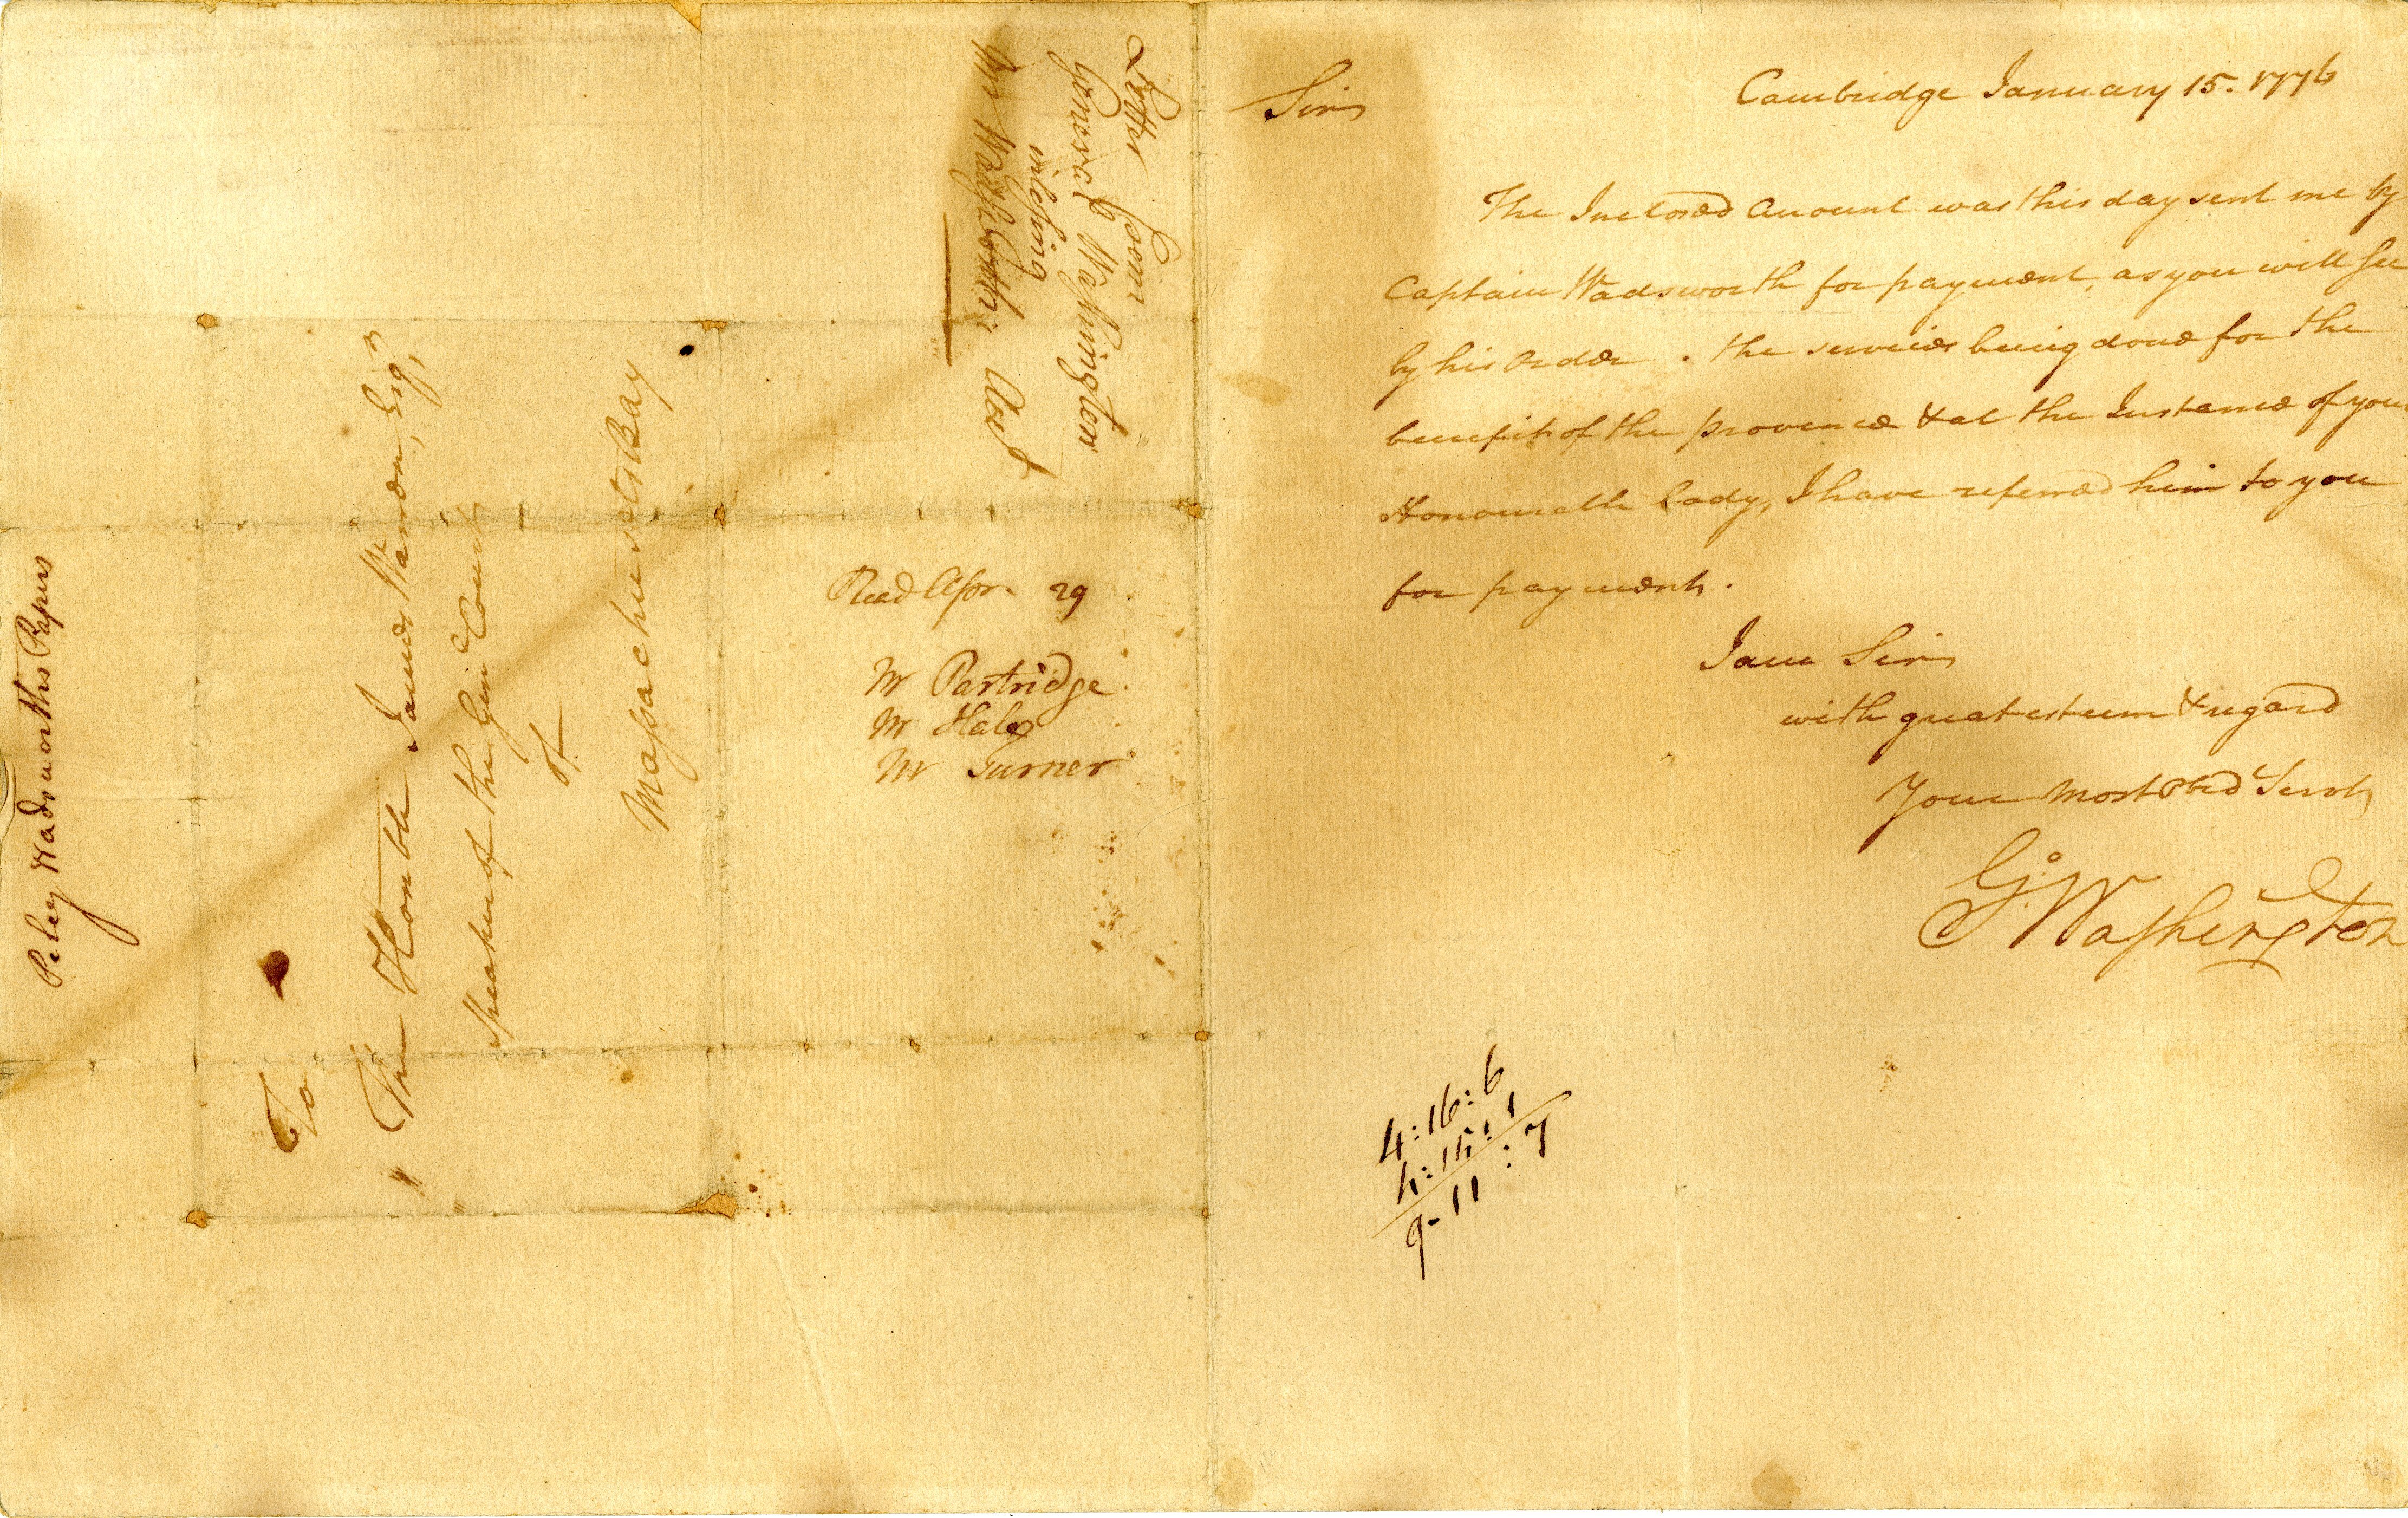 Peleg Wadsworths Papers
To
The Honble James Warren, Esqr,
Speaker of the Genl Court
of
Massachusetts Bay
Letter from
General Washington
inclosing
Mr Wadsworth's Acct
Read Apr. 29
Mr Partridge
Mr Hale
Mr Turner
Cambridge January 15. 1776
Sir
The Inclosed Account was this day sent me by
Captain Wadsworth for payment, as you will see
by his Order . the services being done for the
benefit of the province & at the Instance of your
Honourable body, I have referred him to you
for payment.
I am Sir
with great esteem & regard
Your most Obed Servt,
Go Washington
4:16:6
4:15:1
9-11:7